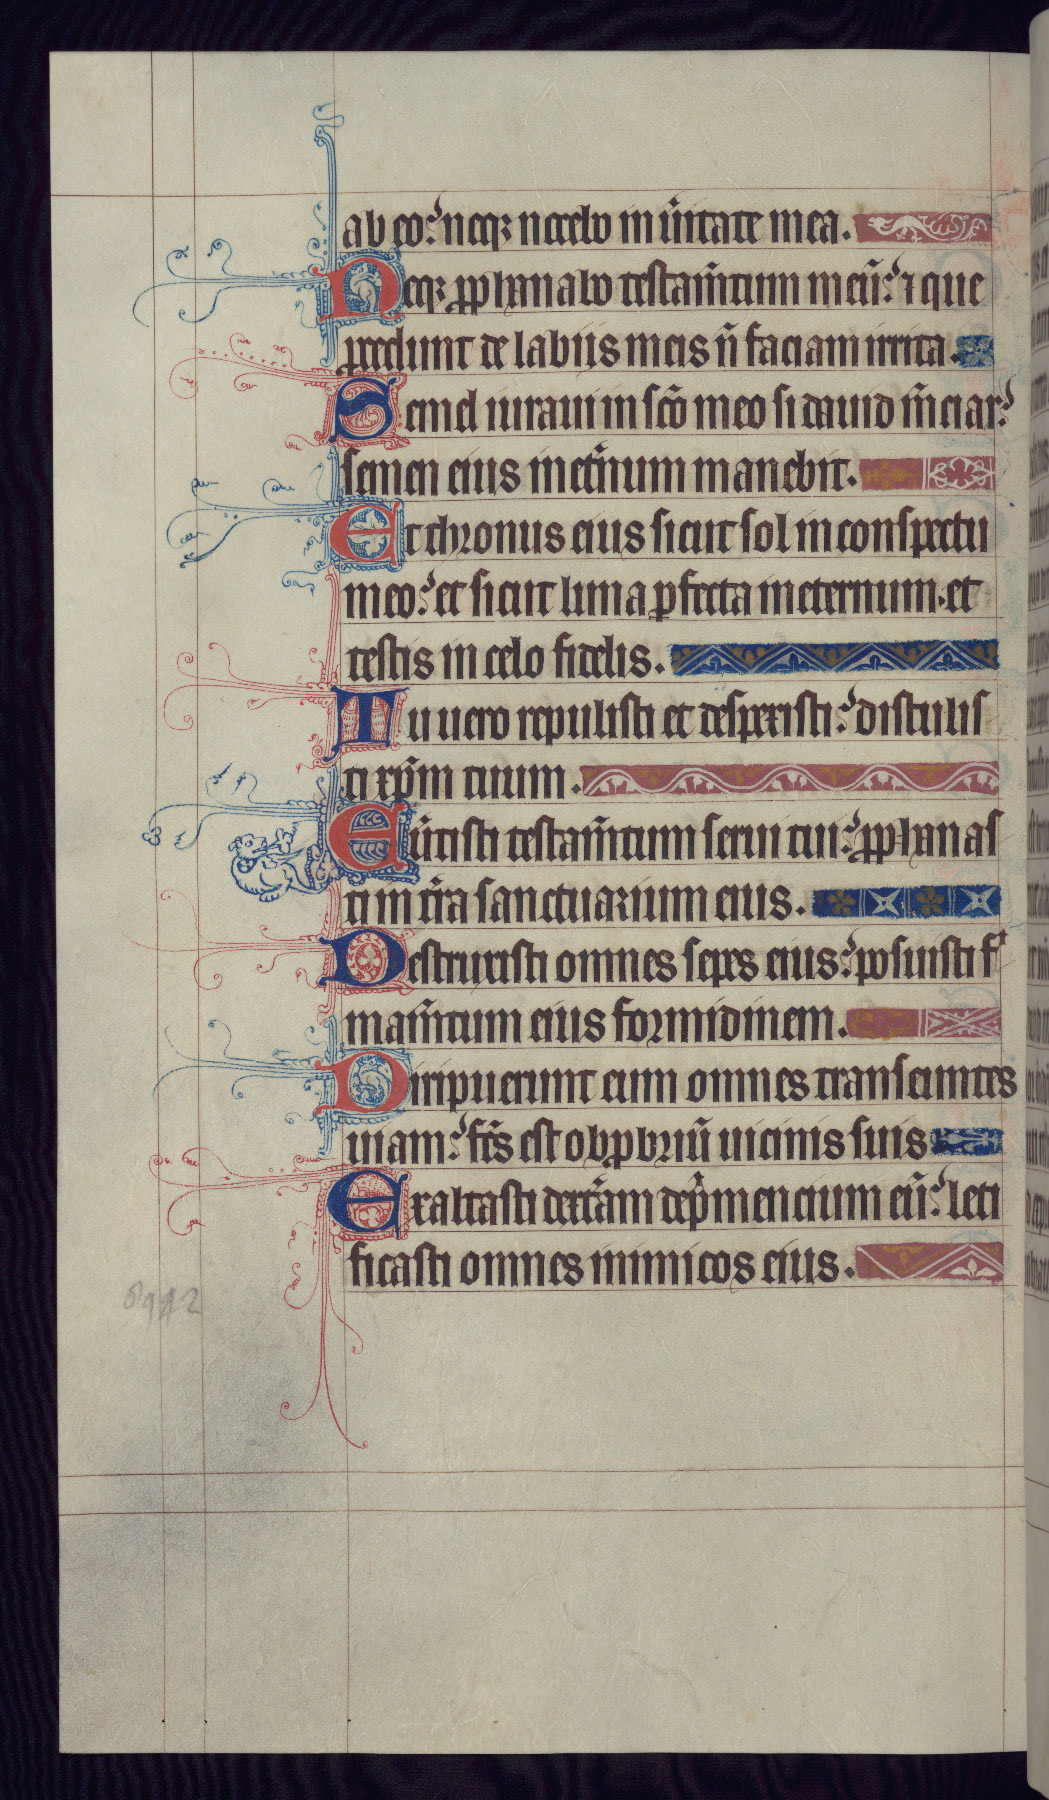 ab eo: neqꝫ nocebo in ũitate mea.
Neqꝫ ꝓphanabo testam̃tum meũ: ⁊ que
ꝓcedunt de labiis meis ñ faciam irrita.
Semel iuraui in sc̃o meo si dauid m̃ciar:
semen eius in et̃num manebit.
Et thronus eius sicut sol in conspectu
meo: et sicut luna ꝑfecta in eternum. et
testis in celo fidelis.
Tu uero repulisti et despexisti: distulis
ti xp̃m tuum.
Eũtisti testam̃tum serui tui: ꝓphanas
ti in t̃ra sanctuarium eius.
Destruxisti omnes sepes eius: posuisti f
mam̃tum eius formidinem.
Diripuerunt eum omnes transeuntes
uiam: fc̃s est obꝓbriũ uicinis suis
Exaltasti dext̃am dep̃mencium eũ: leti
ficasti omnes inimicos eius.